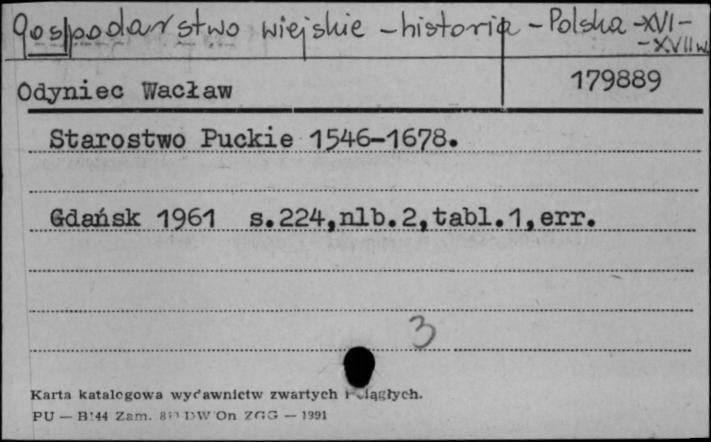 Gospodarstwo wiejskie – historia – Polska – XVI –
– XVII w.
Odyniec Wacław 179889
Starostwo Puckie 1546-1678.
Gdańsk 1961 s.224,nlb.2,tabl.1,err.
3
Karta katalogowa wydawnictw zwartych i ciągłych.
PU — B144 Zam. DW On ZGG — 1991